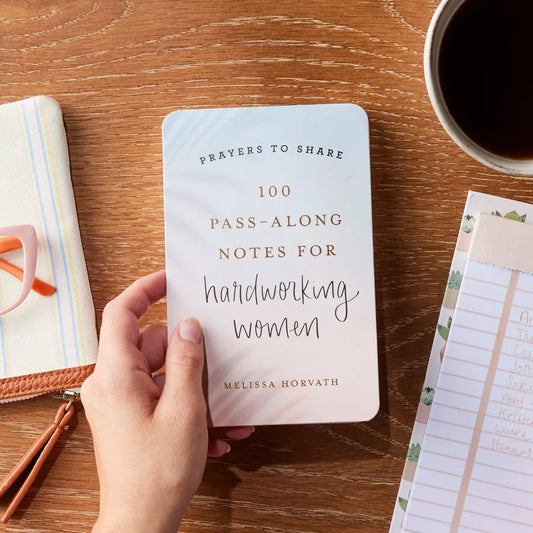 PRAYERS TO SHARE
100
PASS-ALONG
NOTES FOR
hardworking
women
MELISSA HORVATH
Laura